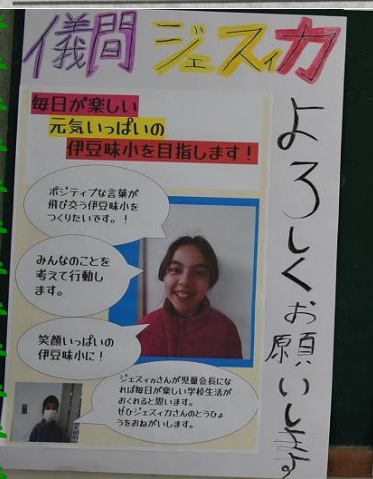 儀間 ジェスィカ
毎日が楽しい
元気いっぱいの
伊豆味小を目指します！
ポジティブな言葉が
飛び交う伊豆味小を
つくりたいです。！
みんなのことを
考えて行動し
ます。
笑顔いっぱいの
伊豆味小に！
ジェスィカさんが児童会長にな
れば毎日が楽しい学校生活が
おくれると思います。
ぜひジェスィカさんのとうひょ
うをおねがいします。
よろしくお願いします